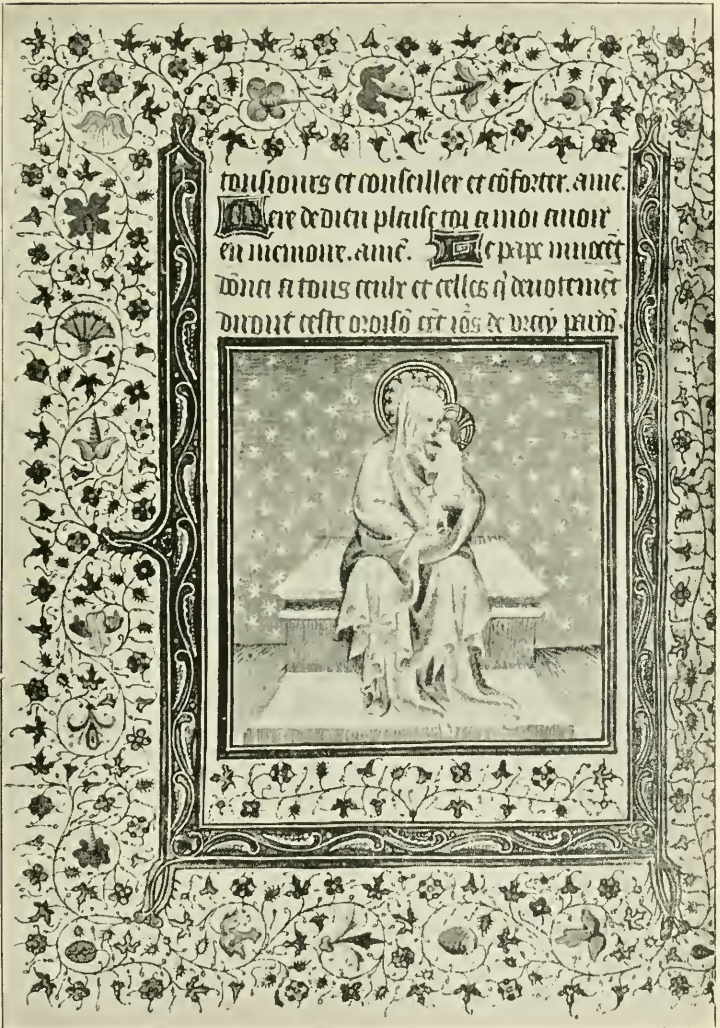 tousiours et conseiller et cōforter. ame.
Mere de dieu plaise toi a moi auoir
en memoire. amē. Le pape innocēt
donna a tous ceulx et celles q̄ deuotemēt
diront ceste oroisō cēt iōs de vray pardō.